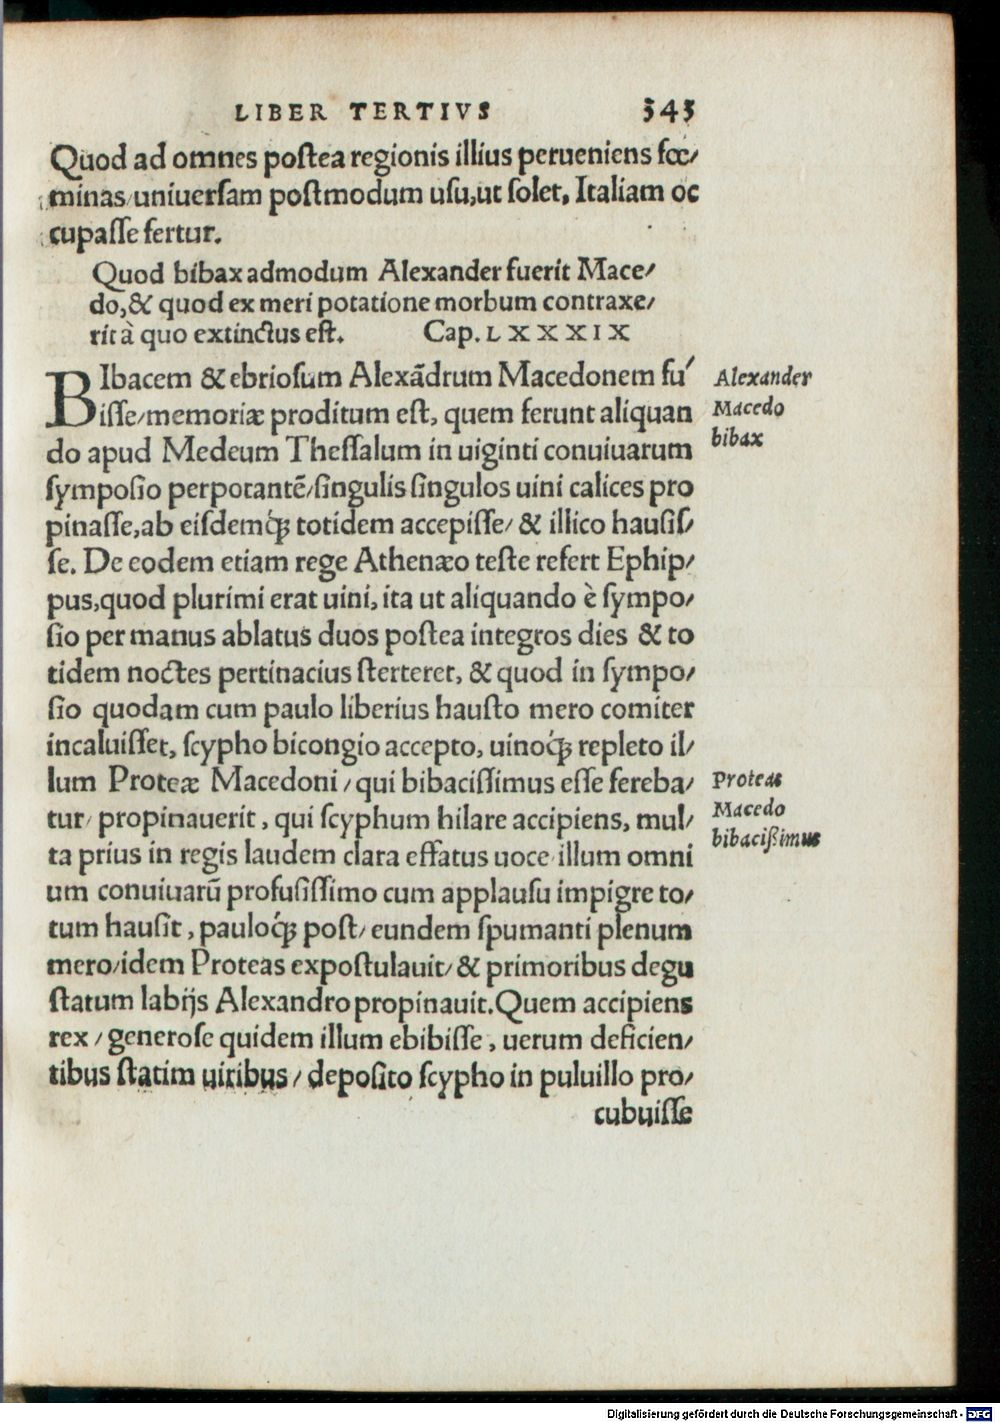 LIBER TERTIVS 343
Quod ad omnes postea regionis illius perueniens fœ/
minas/uniuersam postmodum usu,ut solet, Italiam oc
cupasse fertur.
Quod bibax admodum Alexander fuerit Mace/
do,& quod ex meri potatione morbum contraxe/
rit à quo extinctus est. Cap. LXXXIX
BIbacem & ebriosum Alexãdrum Macedonem fu/
isse/memoriæ proditum est, quem ferunt aliquan
do apud Medeum Thessalum in uiginti conuiuarum
symposio perpotantẽ/singulis singulos uini calices pro
pinasse,ab eisdemq́; totidem accepisse/ & illico hausis/
se. De eodem etiam rege Athenæo teste refert Ephip/
pus,quod plurimi erat uini, ita ut aliquando è sympo/
sio per manus ablatus duos postea integros dies & to
tidem noctes pertinacius sterteret, & quod in sympo/
sio quodam cum paulo liberius hausto mero comiter
incaluisset, scypho bicongio accepto, uinoq́; repleto il/
lum Proteæ Macedoni/qui bibacissimus esse fereba/
tur/ propinauerit, qui scyphum hilare accipiens, mul/
ta prius in regis laudem clara effatus uoce/illum omni
um conuiuarũ profusissimo cum applausu impigre to/
tum hausit, pauloq́; post/ eundem spumanti plenum
mero/idem Proteas expostulauit/ & primoribus degu
statum labijs Alexandro propinauit. Quem accipiens
rex/generose quidem illum ebibisse, uerum deficien/
tibus statim uiribus/deposito scypho in puluillo pro/
cubuisse
Alexander
Macedo
bibax
Proteas
Macedo
bibacißimus
Digitalisierung gefördert durch die Deutsche Forschungsgemeinschaft - DFG